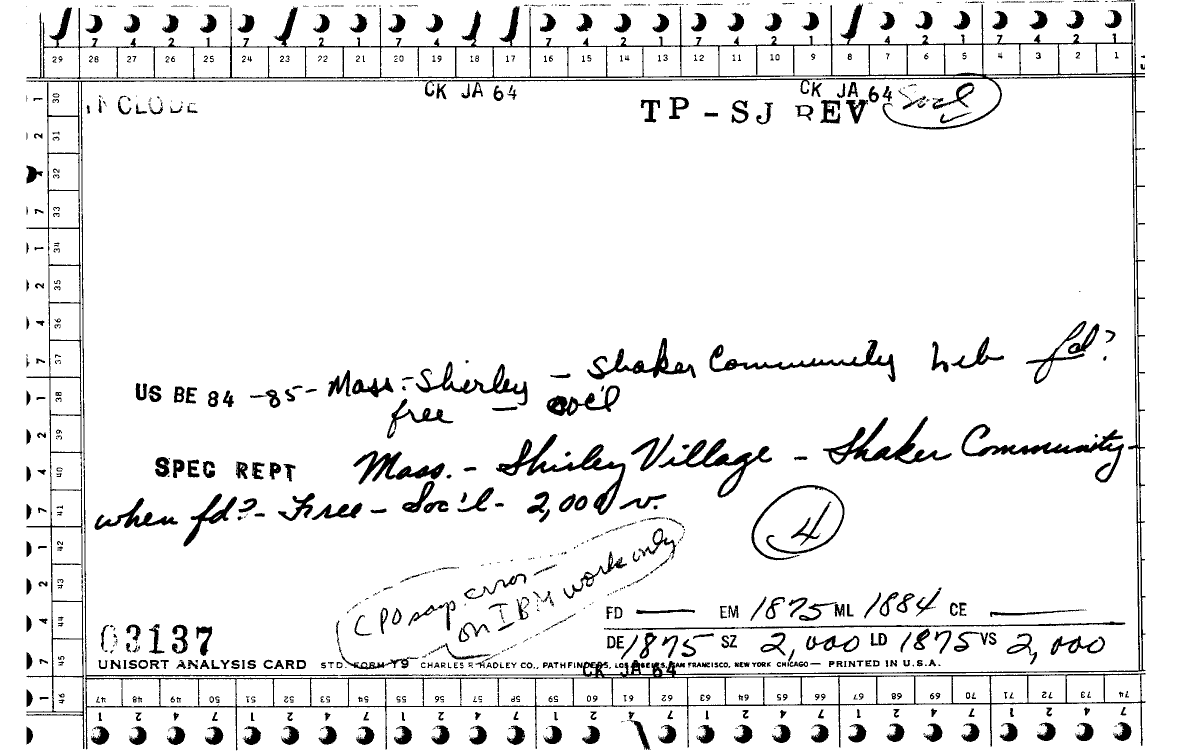 7 4 2 1 7 4 2 1 7 4 2 1 7 4 2 1 7 4 2 1 7 4 2 1 7 4 2 1
29 28 27 26 25 24 23 22 21 20 19 18 17 16 15 14 13 12 11 10 9 8 7 6 5 4 3 2 1
CK JA 64 CK JA 64
INCLUDE TP - SJ REV Soc'l
US BE 84 -85- Mass.- Shirley - Shaker Community Lib fd?
free - soc'l
SPEC REPT Mass. - Shirley Village - Shaker Community -
when fd? - Free - Soc'l - 2,000 v.
4
CPO says error -
on IBM work only
FD — EM 1875 ML 1884 CE —
03137
DE 1875 SZ 2,000 LD 1875 VS 2,000
UNISORT ANALYSIS CARD STD. FORM Y9 CHARLES R HADLEY CO., PATHFINDERS, LOS ANGELES, SAN FRANCISCO, NEW YORK CHICAGO — PRINTED IN U.S.A.
CK JA 64
30 31 32 33 34 35 36 37 38 39 40 41 42 43 44 45 46
47 48 49 50 51 52 53 54 55 56 57 58 59 60 61 62 63 64 65 66 67 68 69 70 71 72 73 74
1 2 4 7 1 2 4 7 1 2 4 7 1 2 4 7 1 2 4 7 1 2 4 7 1 2 4 7